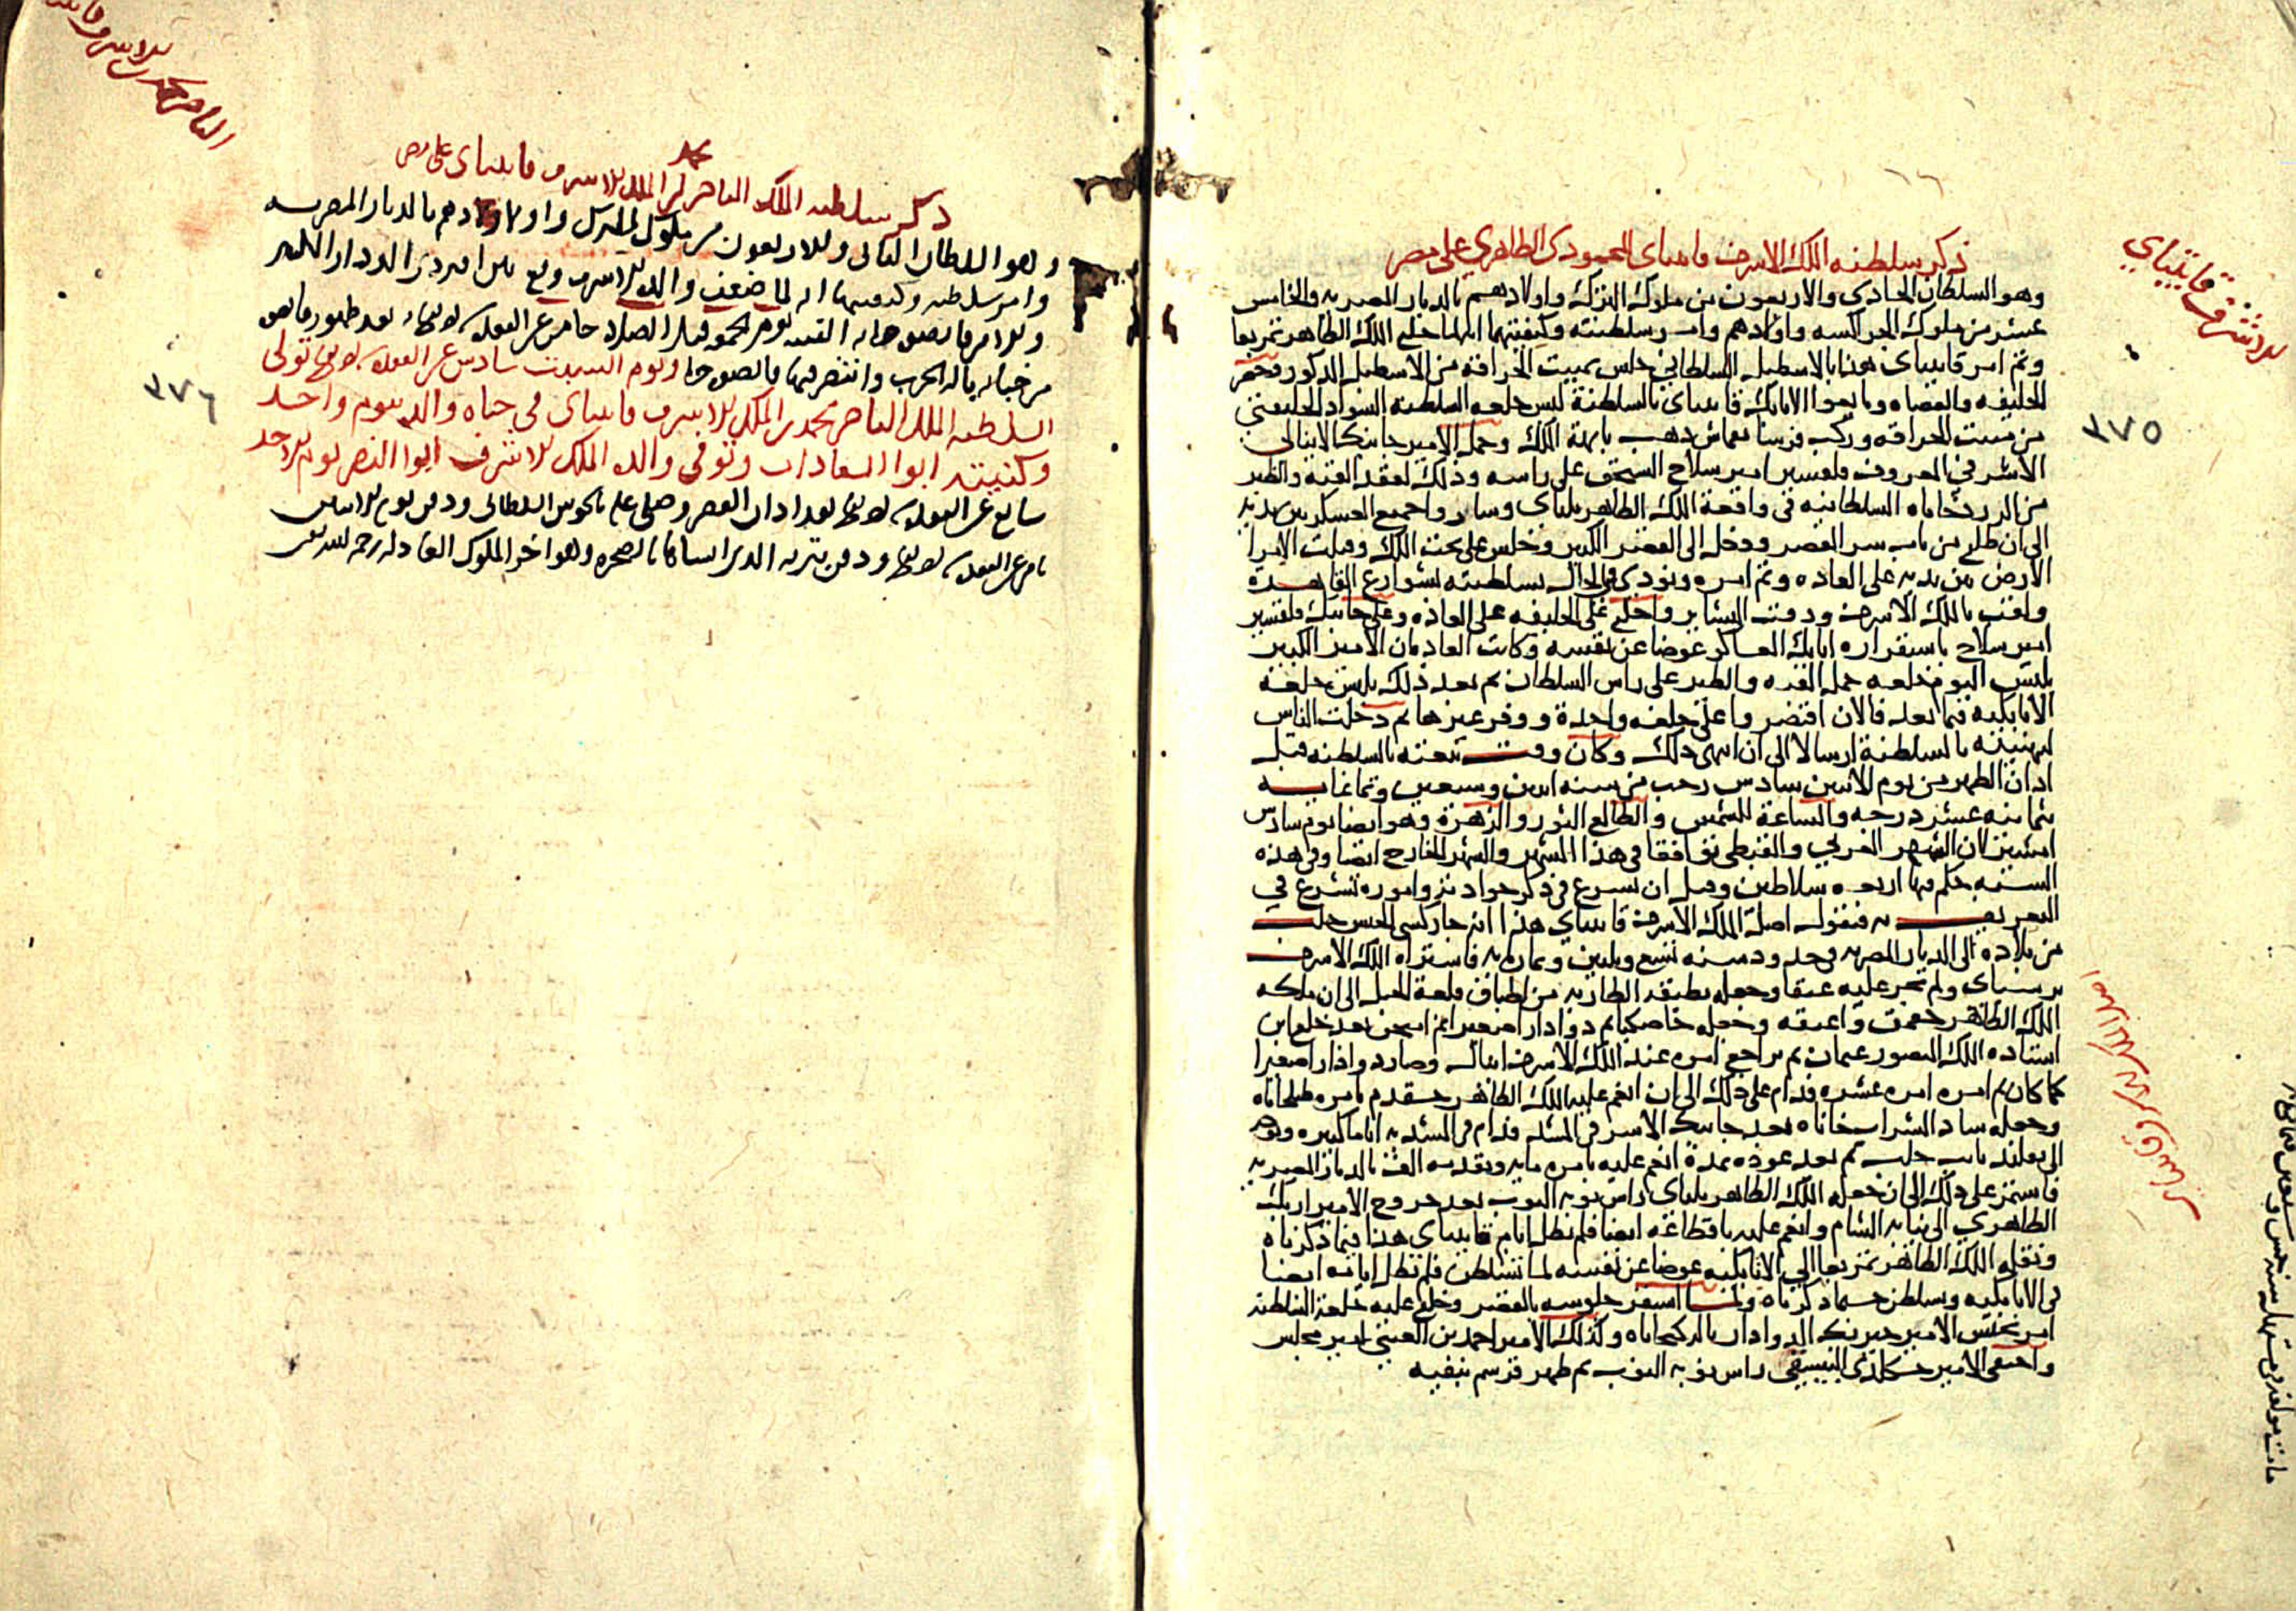 ذكر سلطنه الملك الاشرف قايتباى المحمودى الظاهري على مصر
وهو السلطان الحادي والاربعون من ملوك الترك واولادهم بالديار المصريه والخامس
عشر من ملوك الجراكسه واولادهم وامر سلطنته وكيفيتها انه لما خلع الملك الظاهر تمربغا
وتم امر قايتباى هذا بالاسطبل السلطاني جلس بمبيت الحراقة من الاسطبل المذكور وحضر
الخليفه والقضاه وبايعوا الاتابك قايتباى بالسلطنة لبس خلعه السلطنه السواد الخليفتي
من مبيت الحراقه وركب فرسا بقماش ذهب بابهة الملك وحمل الامير جانبك الاينالى
الاشرفي المعروف بقلقسيز امير سلاح السنجق على راسه وذلك لفقد القبه والطير
من الزردخاناه السلطانيه في واقعة الملك الظاهر يلباى وسار واجميع العسكر بين يديه
الى ان طلع من باب سر القصر ودخل الى القصر الكبير وجلس على تخت الملك وقبلت الامرا
الارض بين يديه على العاده وتم امره ونودى في الحال بسلطنته بشوارع القاهرة
ولقب بالملك الاشرف ودقت البشاير واخلع على الخليفه على العاده وعلى جانبك قلقسيز
امير سلاح باستقراره اتابك العساكر عوضا عن نفسه وكانت العاده ان الامير الكبير
يلبس اليوم خلعه حمل القبه والطير على راس السلطان ثم بعد ذلك يلبس خلعة
الاتابكيه فيما بعد فالان اقتصر واعلى خلعه واحدة ووفر غيرها ثم دخلت الناس
لتهنئته بالسلطنة ارسالا الى ان انتهى ذلك وكان وقت بيعته بالسلطنه قبل
اذان الظهر من يوم الاثنين سادس رجب من سنه اثنين وسبعين وثماغايه
بثمانيه عشر درجه والساعة للشمس والطالع الثور والزهرة وهو ايضا يوم سادس
امشير لان الشهر العربي والقبطى توافقا في هذا الشهر والشهر الخارج ايضا وفي هذه
السنه حكم فيها اربعه سلاطين وقبل ان نسرع في ذكر حوادثه واموره نشرع في
التعريف به فنقول اصل الملك الاشرف قايتباي هذا انه جاركسى الجنس جلب
من بلاده الى الديار المصريه في حدود سنه تسع وثلثين وثمان مايه فاشتراه الملك الاشرف
برسباى ولم يجر عليه عتقا وجعله بطبقه الطازيه من اطباق قلعة الجبل الى ان ملكه
الملك الظاهر جقمق واعتقه وجعله خاصكيا ثم دوادارا صغيرا ثم امتحن بعد خلع ابن
استاده الملك المنصور عثمان ثم تراجع امره عند الملك الاشرف اينال وصار دوادارا صغيرا
كما كان ثم امره امره عشره فدام على ذلك الى ان انعم عليه الملك الظاهر خشقدم بامره طبلخاناه
وجعله شاد الشراب خاناه بعد جانبك الاشرفى المشد فدام في الشديه اياما كثيره وتوجه
الى تقليد نايب حلب ثم بعد عوده بمدة انعم عليه بامره مايه وتقدمه الف بالديار المصريه
فاستمر على ذلك الى ان جعله الملك الظاهر يلباى راس نوبه النوب بعد خروج الامير ازبك
الظاهري الى نيابه الشام وانعم عليه باقطاعه ايضا فلم تطل ايام قايتباى هذا فيما ذكرناه
ونقله الملك الظاهر تمربغا الى الاتابكيه عوضا عن نفسه لما تسلطن فلم تطل ايامه ايضا
في الاتابكيه وتسلطن حسما ذكرناه ولما استقر جلوسه بالقصر وخلع عليه خلعة السلطنه
امر بحبس الامير خيربك الدوادار بالركبخاناه وكذلك الامير احمد بن العيني امير مجلس
واختفى الامير راس نوبه النوب ثم ظهر فرسم بنفيه
للاشرف قايتباي
٣٧٥
اصل الملك الاشرف قايتباي
ذكر سلطنه الملك الناصر محمد ابن الملك الاشرف قايتباى على مصر
وهو السلطان الثانى والاربعون من ملوك الترك واولادهم بالديار المصريه
وامر سلطنته وكيفيتها انه لما ضعف والده الاشرف وقع بين اقبردى الدوادار الكبير
وبين الامير قانصوه خمسمايه الفتنه يوم الجمعه قبل الصلاه خامس عشر القعده بعد ظهور قانصوه
من خبايه ياله الحرب وانتصر فيها قانصوه ويوم السبت سادس عشر القعده تولى
السلطنه الملك الناصر محمد بن الملك الاشرف قايتباى في حياه والده يوم واحد
وكنيته ابوا السعادات وتوفى والده الملك الاشرف ابوا النصر يوم الاحد
سابع عشر القعده بعد اذان العصر وصلى عليه بالحوش السلطانى ودفن يوم الاثنين
ثامن عشر القعده ودفن بتربه الذى انشاها بالصحره وهو اخر الملوك العادله رحمه الله تعالى
٣٧٦
الناصر محمد بن الاشرف قايتباى